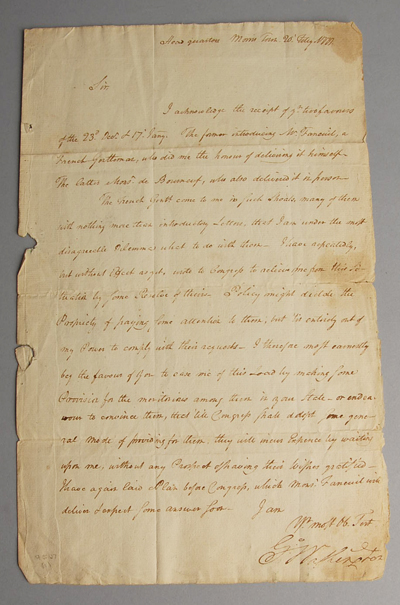 Head quarters Morris Town 20th Feby 1777.
Sir,
I acknowledge the receipt of yr two favours
of the 23d Decr & 17th Jany. The former introducing Mr Faneuil, a
French Gentleman, who did me the honour of delivering it himself.
The latter Monsr de Bonneuf, who also delivered it in person.
The French Gentn come to me in such Shoals, many of them
with nothing more than introductory Letters, that I am under the most
disagreeable Dilemma what to do with them. I have repeatedly,
but without Effect as yet, wrote to Congress to
by some Resolve of theirs. Policy might decide the
Propriety of paying some attention to them, but 'tis entirely out of
my Power to comply with their requests. I therefore most earnestly
beg the favour of you to ease me of this Load by making some
Provision for the meritorious among them in your State or endea
vour to convince them, that 'till Congress shall adopt some gene
ral mode of providing for them, they will incur Expence by waiting
upon me, without any Prospect of having their Wishes gratified.
I have again laid a Plan before Congress, which Monsr Faneuil will
deliver & expect some answer soon. I am
Yr most Ob. Servt
Go Washington